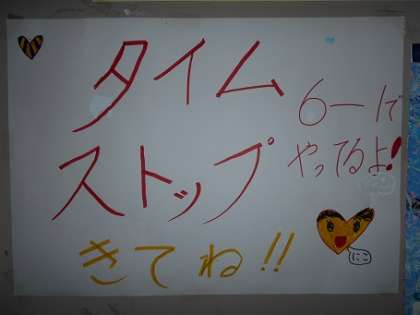 タイム
ストップ
6-1で
やってるよ!
きてね!!
にこ